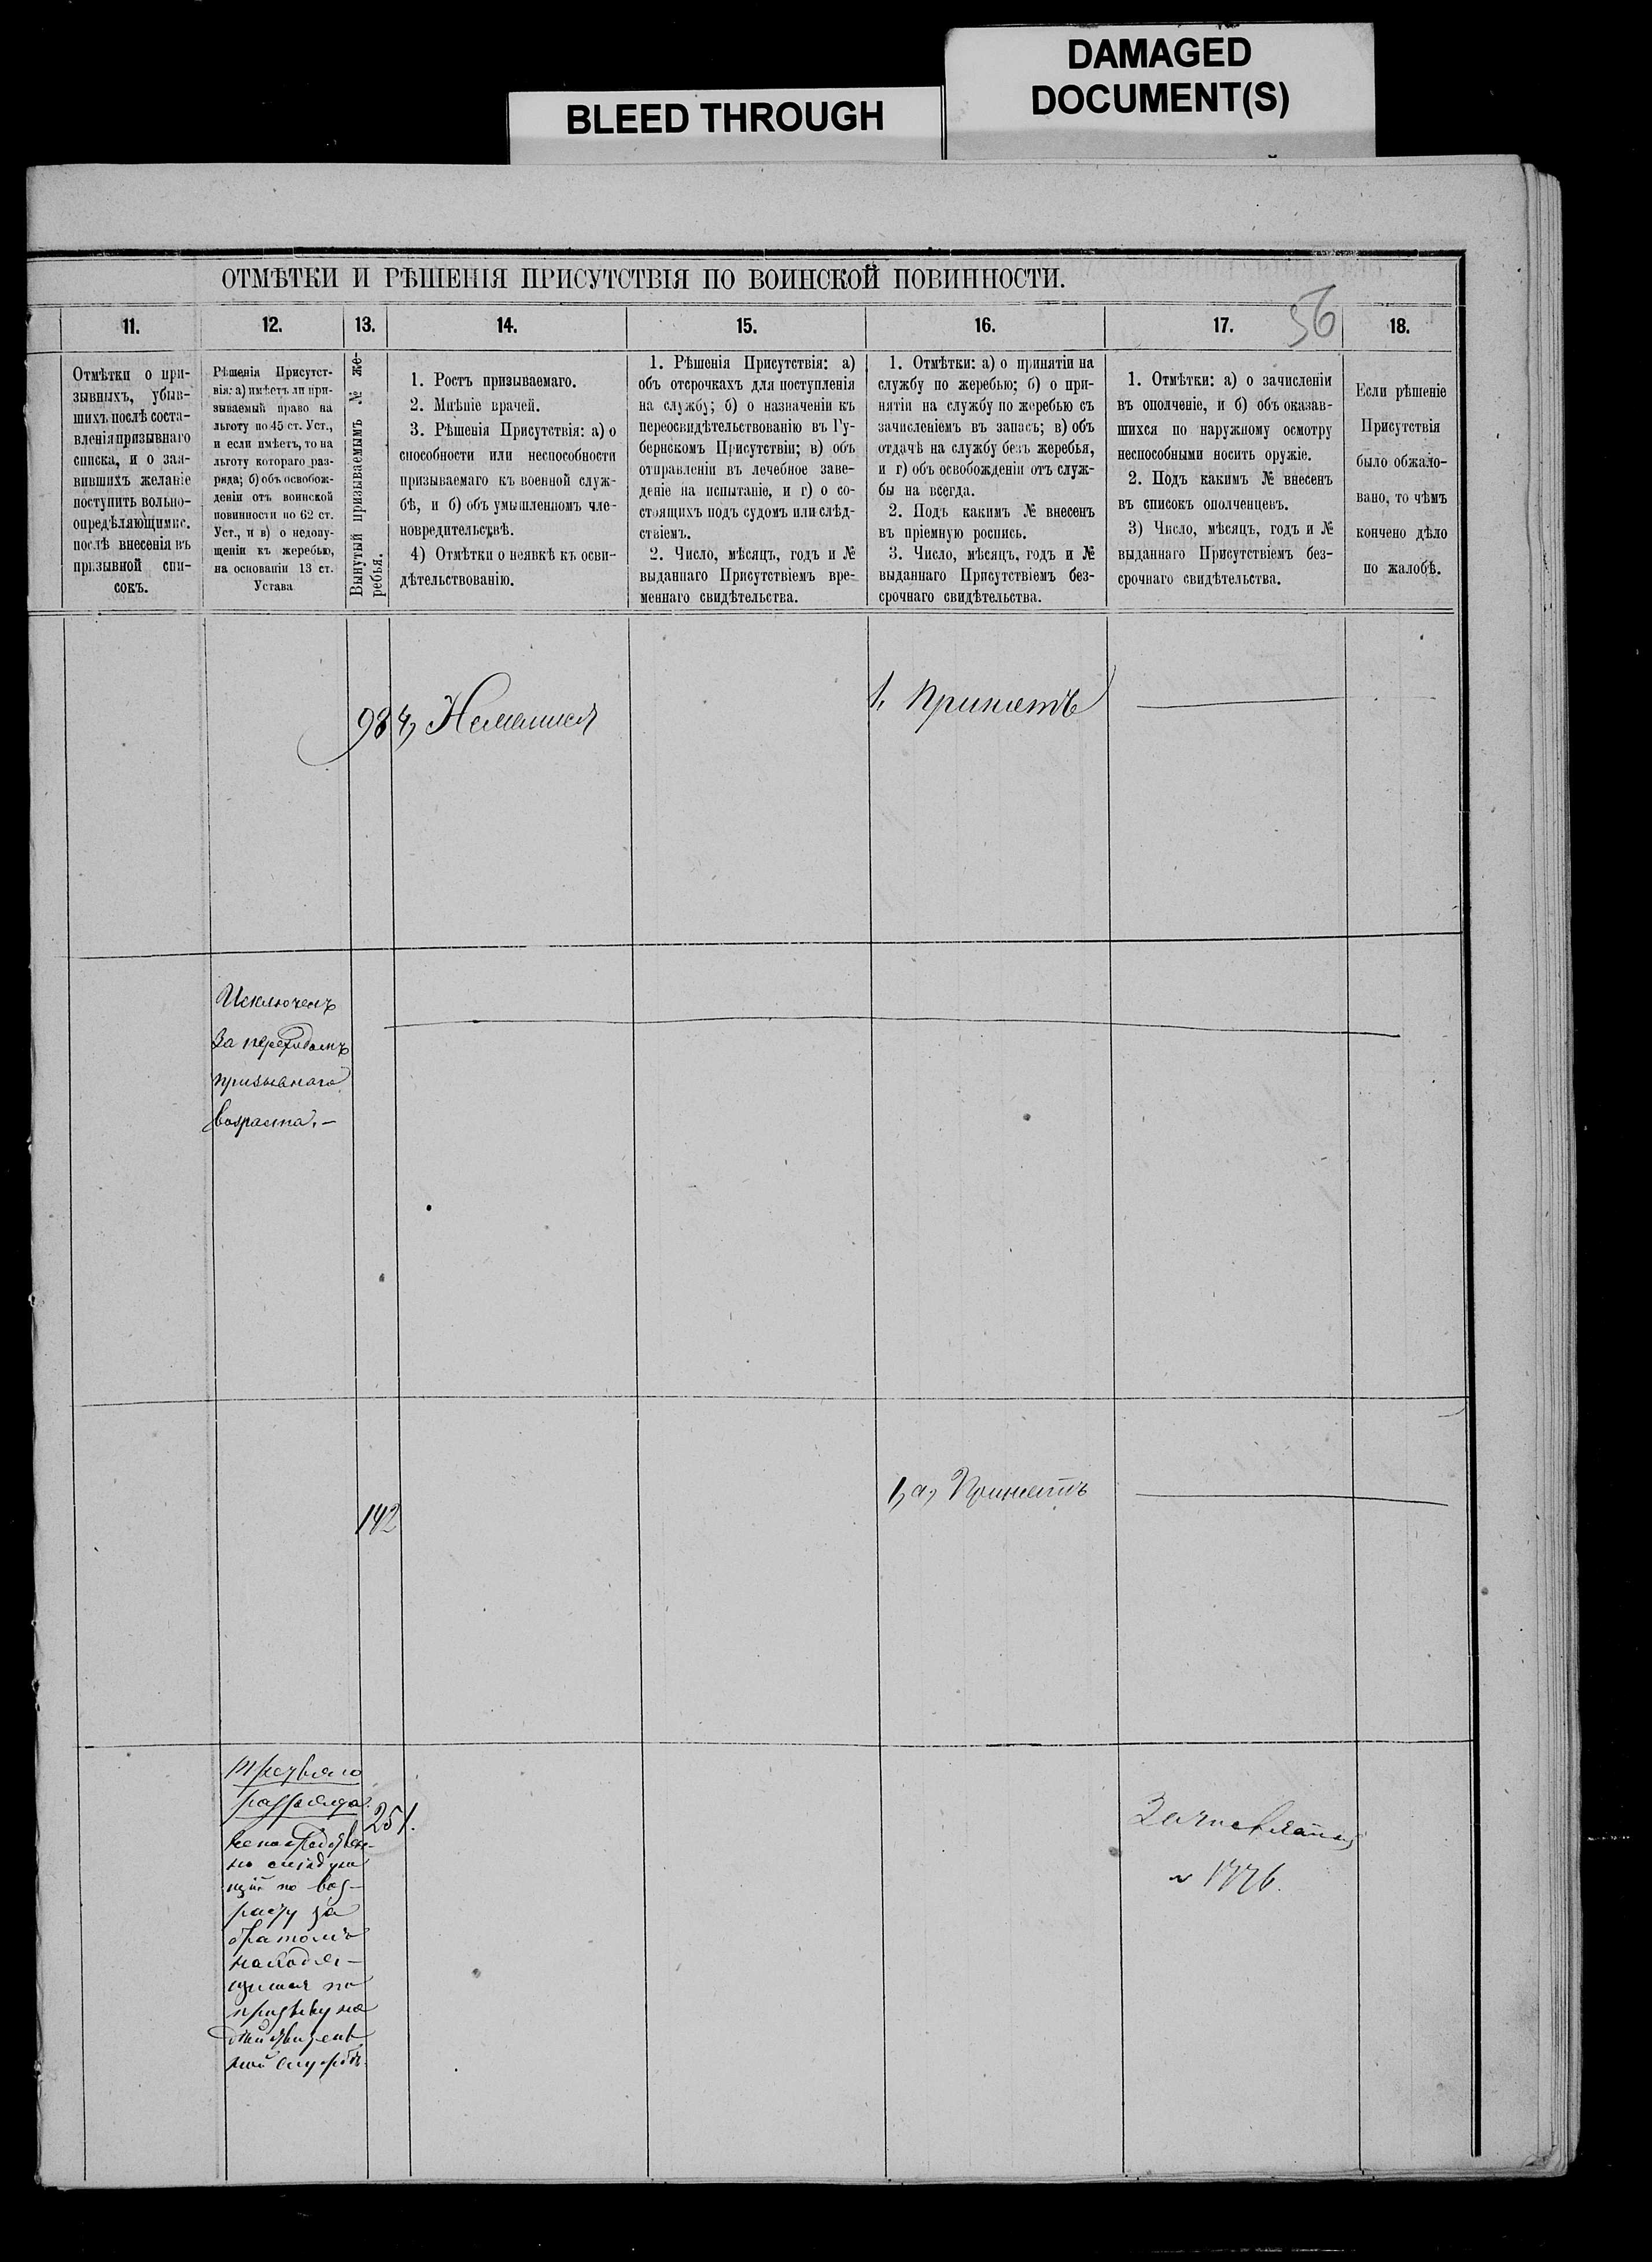 DAMAGED
DOCUMENT(S)
BLEED THROUGH
ОТМѢТКИ И РѢШЕНІЯ ПРИСУТСТВІЯ ПО ВОИНСКОЙ ПОВИННОСТИ.
56
11.
12.
13.
14.
15.
16.
17.
18.
Отмѣтки о при-
зывныхъ, убыв-
шихъ послѣ соста-
вленія призывнаго
списка, и о зая-
вившихъ желаніе
поступить вольно-
опредѣляющимис.
послѣ внесенія въ
призывной спи-
сокъ.
Рѣшенія Присутст-
вія: а) имѣетъ ли при-
зываемый право на
льготу по 45 ст. Уст.,
и если имѣетъ, то на
льготу котораго раз-
ряда; б) объ освобож-
деніи отъ воинской
повинности по 62 ст.
Уст., и в) о недопу-
щеніи къ жеребью,
на основаніи 13 ст.
Устава
Вынутый призываемымъ № же-
ребья.
1. Ростъ призываемаго.
2. Мнѣніе врачей.
3. Рѣшенія Присутствія: а) о
способности или неспособности
призываемаго къ военной служ-
бѣ, и б) объ умышленномъ чле-
новредительствѣ.
4) Отмѣтки о неявкѣ къ осви-
дѣтельствованію.
1. Рѣшенія Присутствія: а)
объ отсрочкахъ для поступленія
на службу; б) о назначеніи къ
переосвидѣтельствованію въ Гу-
бернскомъ Присутствіи; в) объ
отправленіи въ лечебное заве-
деніе на испытаніе, и г) о со-
стоящихъ подъ судомъ или слѣд-
ствіемъ.
2. Число, мѣсяцъ, годъ и №
выданнаго Присутствіемъ вре-
меннаго свидѣтельства.
1. Отмѣтки: а) о принятіи на
службу по жеребью; б) о при-
нятіи на службу по жеребью съ
зачисленіемъ въ запасъ; в) объ
отдачѣ на службу безъ жеребья,
и г) объ освобожденіи отъ служ-
бы на всегда.
2. Подъ какимъ № внесенъ
въ пріемную роспись.
3. Число, мѣсяцъ, годъ и №
выданнаго Присутствіемъ без-
срочнаго свидѣтельства.
1. Отмѣтки: а) о зачисленіи
въ ополченіе, и б) объ оказав-
шихся по наружному осмотру
неспособными носить оружіе.
2. Подъ какимъ № внесенъ
въ списокъ ополченцевъ.
3) Число, мѣсяцъ, годъ и №
выданнаго Присутствіемъ без-
срочнаго свидѣтельства.
Если рѣшеніе
Присутствія
было обжало-
вано, то чѣмъ
кончено дѣло
по жалобѣ.
98
4,
1, Принятъ
Исключенъ
за переходомъ
призывнаго
возраста. —
142
1, а, Принятъ
третьяго
разряда.
251.
непосредствен-
но слѣдую
щій по воз-
расту за
братомъ
находя-
щимся по
призыву на
дѣйствител
ной службѣ.
1776.